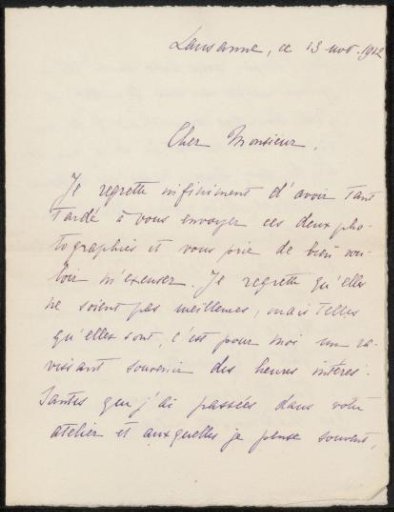 Lausanne, ce 13 nov. 1912
Cher Monsieur,
Je regrette infiniment d'avoir tant
tardé à vous envoyer ces deux pho-
tographies et vous prie de bien vou-
loir m'excuser. Je regrette qu'elles
ne soient pas meilleures, mais telles
qu'elles sont, c'est pour moi un ra-
vissant souvenir des heures intéres-
santes que j'ai passées dans votre
atelier et auxquelles je pense souvent,